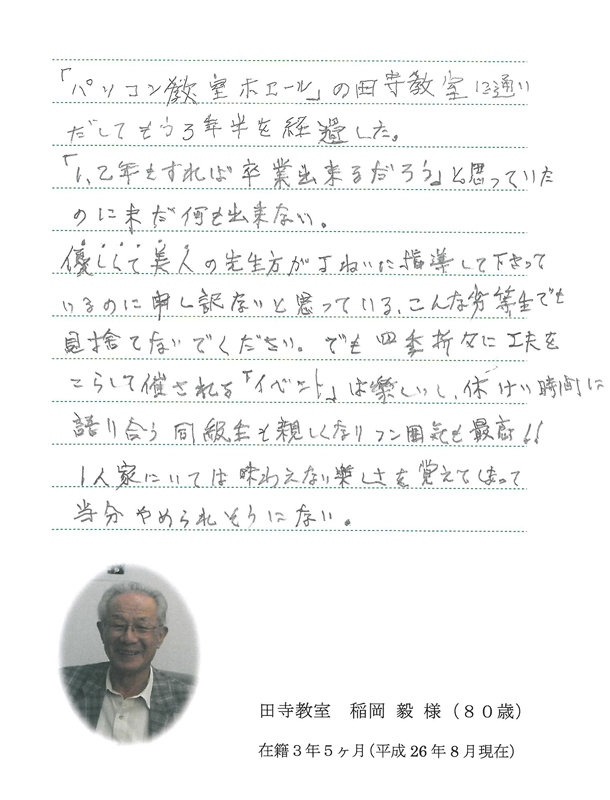 「パソコン教室ホエール」の田寺教室に通い
だしてもう3年半を経過した。
「1、2年もすれば卒業出来るだろう」と思っていた
のに未だ何も出来ない。
優しくて美人の先生方がていねいに指導して下さって
いるのに申し訳ないと思っている、こんな劣等生でも
見捨てないでください。でも四季折々に工夫を
こらして催される「イベント」は楽しいし、休けい時間に
語り合う同級生も親しくなりフン囲気も最高!!
1人家にいては味わえない楽しさを覚えてしまって
当分やめられそうにない。
田寺教室 稲岡 毅 様(80歳)
在籍3年5ヶ月(平成26年8月現在)